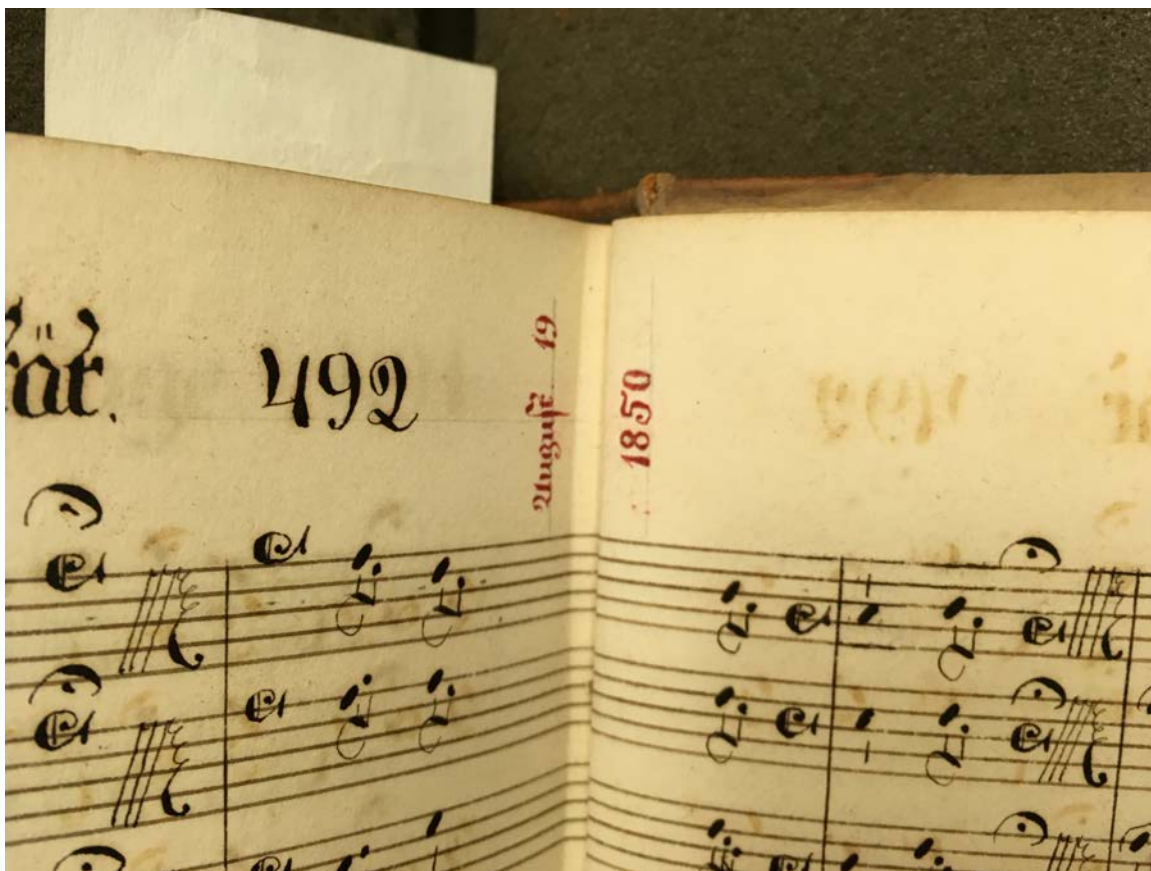 492
August. 19
1850